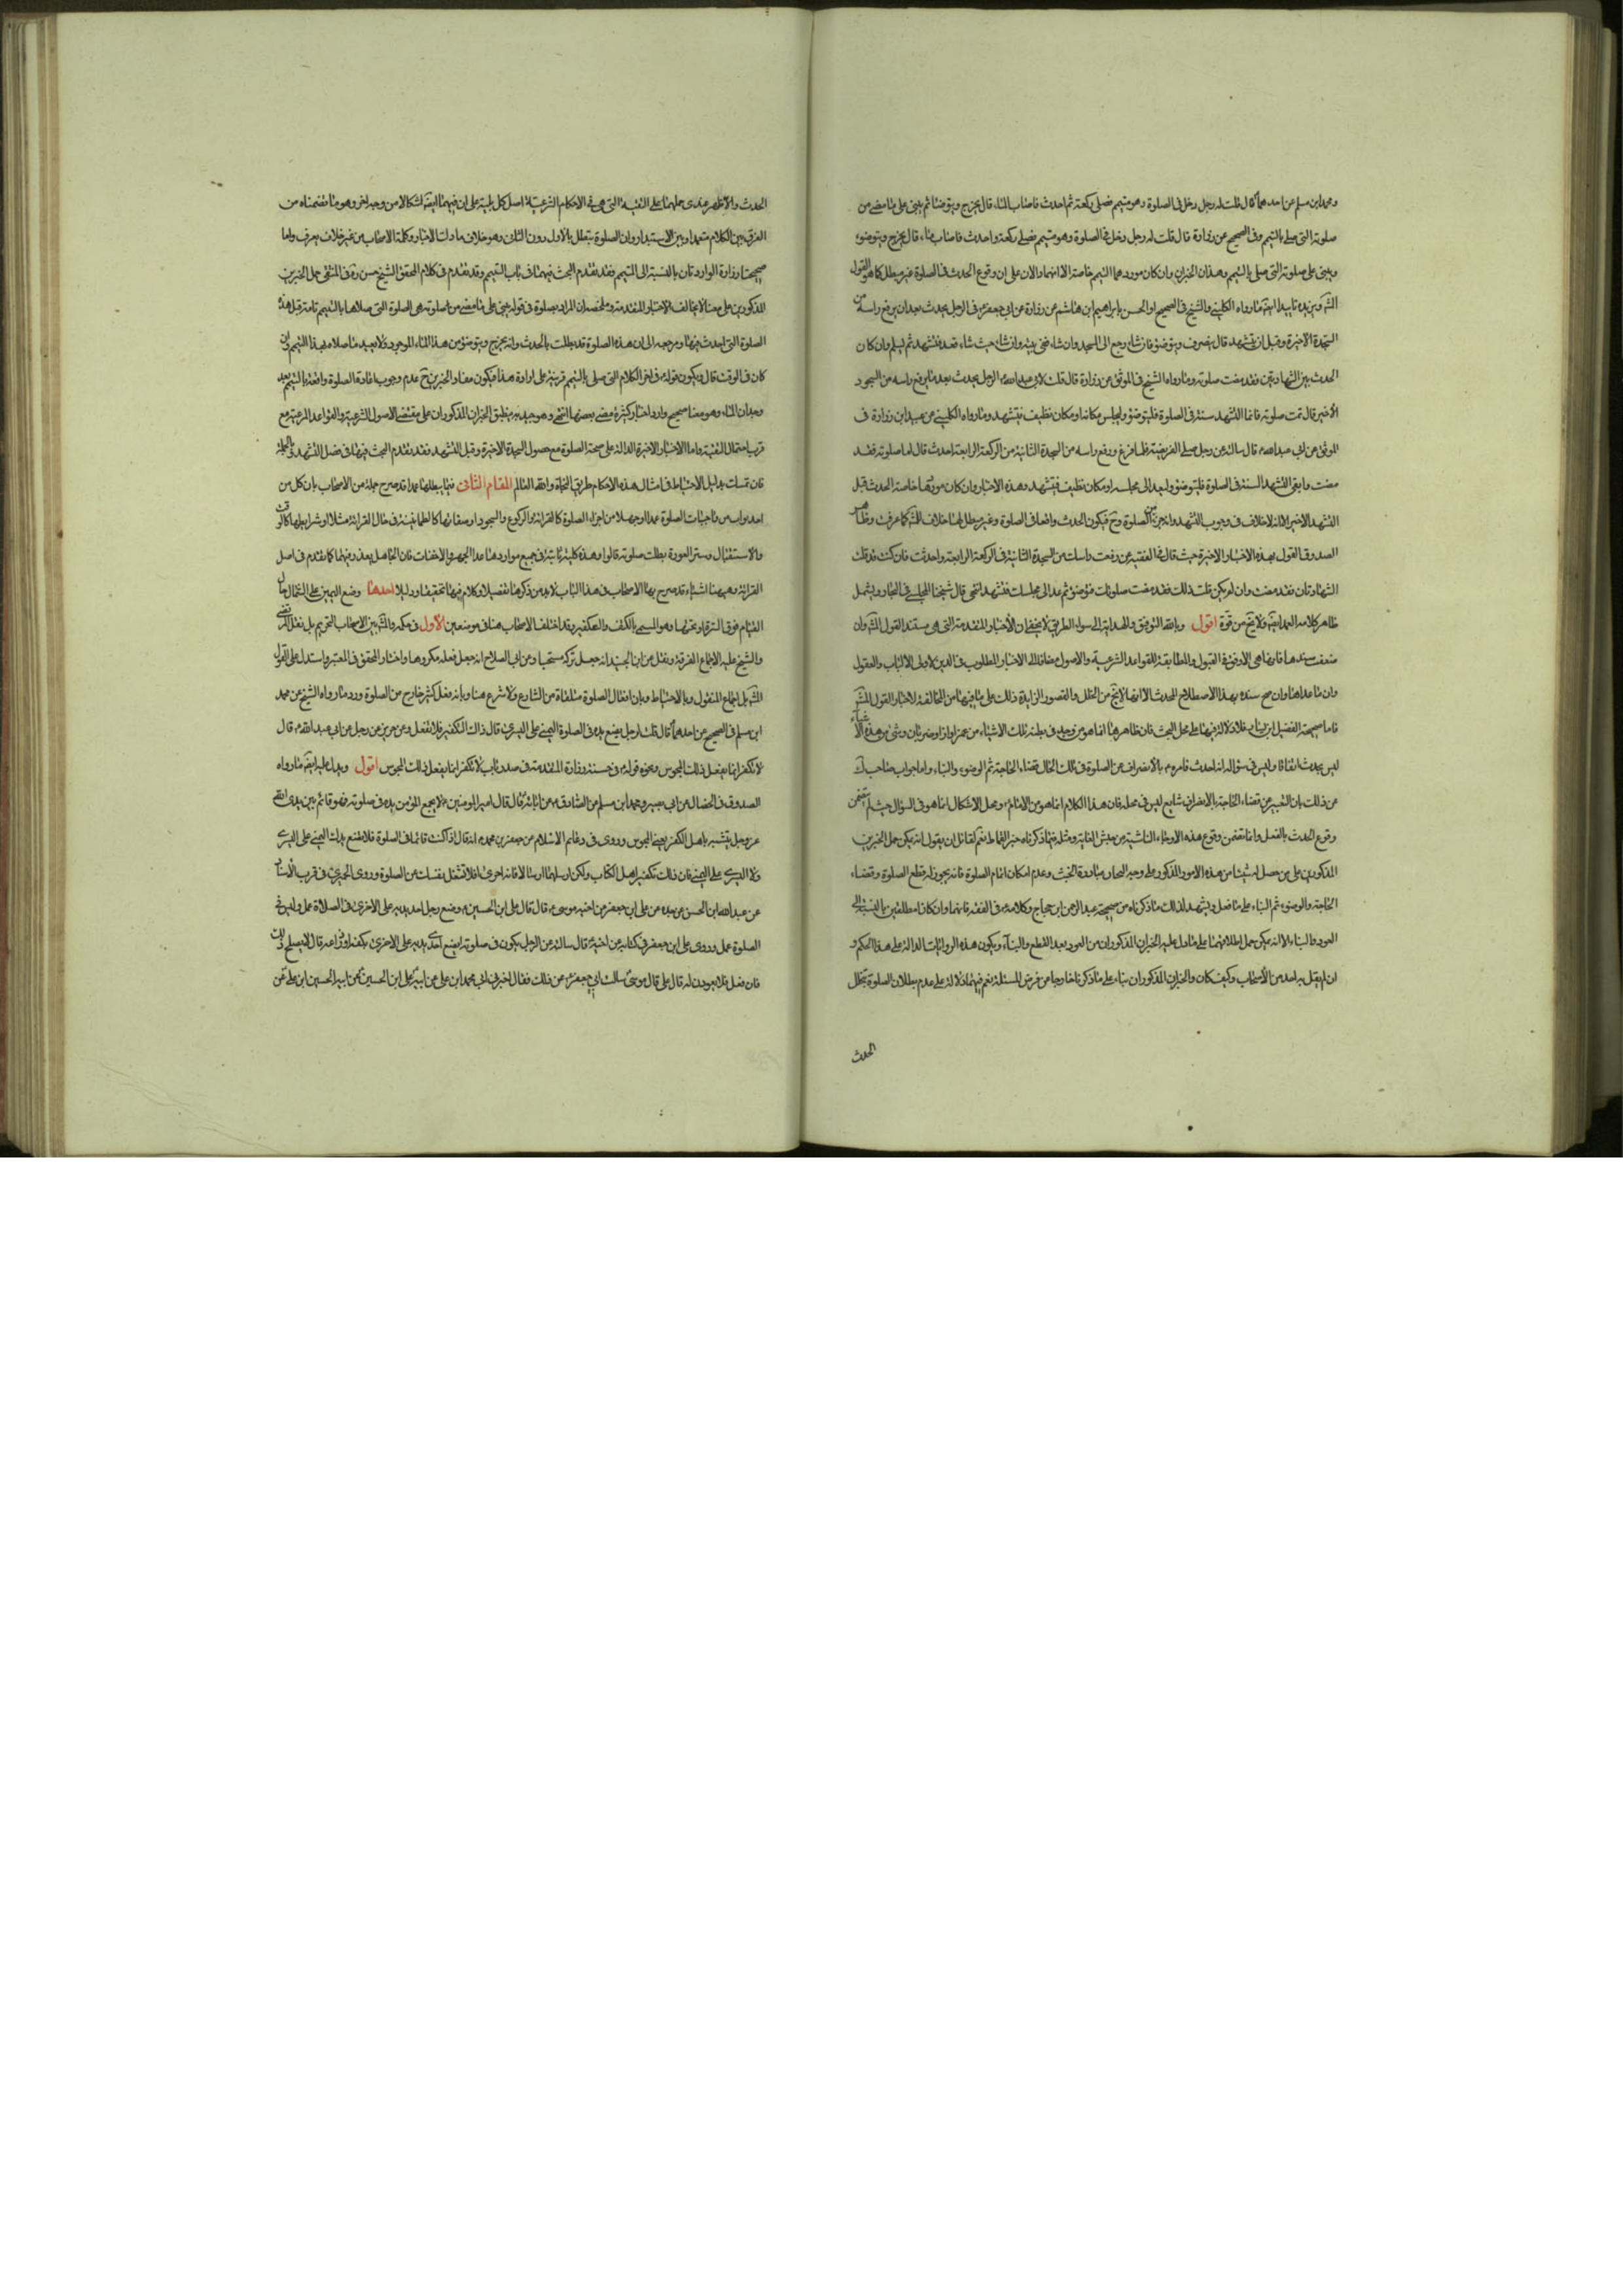 ومحمد ابن مسلم عن احدهما ع قال قلت له رجل دخل فى الصلوة وهو متيمم فصلى ركعة ثم احدث فاصاب الماء قال يخرج ويتوضا ثم يبنى على ما مضى من
صلوته التى صلى بالتيمم وفى الصحيح عن زرارة قال قلت له رجل دخل فى الصلوة وهو متيمم فصلى ركعة واحدث فاصاب ماء قال يخرج ويتوضوء
ويبنى على صلوته التى صلى بالتيمم وهذان الخبران وان كان موردهما التيمم خاصة الا انهما دالان على ان وقوع الحدث فى الصلوة غير مبطل كما هو القول
الشه ويزيده تاييدا ايضه ما رواه الكلينى والشيخ فى الصحيح او الحسن بابراهيم ابن هاشم عن زرارة عن ابى جعفر ع فى الرجل يحدث بعد ان يرفع راسه من
السجدة الاخيرة وقبل ان يتشهد قال ينصرف ويتوضؤ فان شاء رجع الى المسجد وان شاء ففى بيته وان شاء حيث شاء قعد فتشهد ثم يسلم وان كان
الحدث بين الشهادتين فقد مضت صلوته وما رواه الشيخ فى الموثق عن زرارة قال قلت لابى عبد الله ع الرجل يحدث بعد ما يرفع راسه من السجود
الاخير قال تمت صلوته فانما التشهد سنة فى الصلوة فليتوضؤ وليجلس مكانه او مكان نظيف فيتشهد وما رواه الكلينى عن عبيد ابن زرارة فى
الموثق عن ابى عبد الله ع قال سالته عن رجل صلى الفريضة فلما فرغ ورفع راسه من السجدة الثانية من الركعة الرابعة احدث قال اما صلوته فقد
مضت وابقى التشهد السنة فى الصلوة فليتوضؤ وليعد الى مجلسه او مكان نظيف فيتشهد وهذه الاخبار وان كان موردها خاصة الحدث قبل
التشهد الاخير الا انه لا خلاف فى وجوب التشهد وانه جزء من الصلوة وح فيكون الحدث واقعا فى الصلوة وغير مبطل لها خلاف الشه كما عرفت وظاهر
الصدوق القول بهذه الاخبار الاخيرة حيث قال فى الفقيه عن رفعت راسك من السجدة الثانية فى الركعة الرابعة واحدثت فان كنت قد قلت
الشهادتان فقد مضت وان لم يكن قلت ذلك فقد مضت صلوتك فتوضؤ ثم عد الى مجلسك فتشهد انتهى قال شيخنا المجلسى فى البحار ويشمل
ظاهر كلامه العمد ايضه ولا يخ من قوة اقول وبالله التوفيق والهداية الى سواء الطريق لا يخفى ان الاخبار المتقدمة التى هى مستند القول الشه وان
ضعف سندها فانها هى الاوفق فى القبول والمطابقة للقواعد الشرعية والاصول مضافا الى الاخبار المطلوب فى الدين لاولى الالباب والعقول
وان ما عداها وان صح سنده بهذا الاصطلاح المحدث الا انها لا تخ من الخلل والقصور الزايدة ذلك على ما فيها من المخالفة لاخبار القول الشه
فاما صحيحة الفضيل ابن يسار فلا دلالة فيها على محل البحث فان ظاهرها انما هو من وجد فى بطنه تلك الاشياء من غمز او ازا و ضربان وشى من هذه الاشياء
ليس بحدث اتفاقا وليس فى سؤاله انه احدث فامره ع بالانصراف عن الصلوة فى تلك الحال قضاء الحاجة ثم الوضوء والبناء واما جواب صاحب ك
عن ذلك بان التعبير عن قضاء الحاجة بالانصراف شايع ليس فى محله فان هذا الكلام انما هو من الامام ع ومحل الاشكال انما هو فى السؤال حيث لم يتضمن
وقوع الحدث بالفعل وانما تضمن وقوع هذه الاوجاء الناشية من مبش الغاية ومثله فيما ذكرناه خبر القماط نعم لقائل ان يقول انه يمكن حمل الخبرين
المذكورين على من حصل له شيئا من هذه الامور المذكور على وجه المحادر مبادرة الخبث وعدم امكان اتمام الصلوة فانه يجوز له قطع الصلوة وقضاء
الحاجة والوضوء ثم البناء على ما فعل ويشهد لذلك ما ذكرناه من صحيحة عبد الرحمن ابن حجاج وكلامه فى الفقه فانهما وان كانا مطلقين بالنسبة الى
العود والبناء الا انه يمكن حمل اطلاقهما على ما دل عليه الخبران المذكوران من العود بعد القطع والبناء ويكون هذه الروايات الدالة على هذا الحكم و
ان لم يقل به احد من الاصحاب وكيف كان والخبران المذكوران بناء على ما ذكرنا خارجا من فرض المسئلة نعم فيهما دلالة على عدم بطلان الصلوة بتخلل
الحدث
الحدث والاظهر عندى حملهما على التقية التى هى فى الاحكام الشرعية اصل كل بلية على ان فيهما ايضه اشكالا من وجه اخر وهو ما تضمناه من
الفرق بين الكلام متعمدا وبين الاستدبار وان الصلوة يبطل بالاول دون الثانى وهو خلاف ما دلت الاخبار وكلمة الاصحاب من غير خلاف يعرف واما
صحيحتا زرارة الواردتان بالنسبة الى المتيمم فقد تقدم البحث فيهما فى باب التيمم وقد تقدم فى كلام المحقق الشيخ حسن ره فى المنتقى حمل الخبرين
المذكورين على معنى لا يخالف الاخبار المتقدمة وملخصه ان المراد بصلوة فى قوله يبنى على ما مضى من صلوته هى الصلوة التى صلاها بالتيمم تامة قبل هذه
الصلوة التى احدث فيها ومرجعه الى ان هذه الصلوة قد بطلت بالحدث وانه يخرج ويتوضؤ من هذا الماء الموجود ولا يعيد ما صلاه بهذا التيمم وان
كان فى الوقت قال ويكون قوله فى اخر الكلام التى صلى بالتيمم قرينة على ارادة هذا فيكون مفاد الخبرين ح عدم وجوب اعادة الصلوة واقعة بالتيمم بعد
وجدان الماء وهو معنا صحيح وارد اخبار كثيرة مضى بعضها انتهى وهو جيد به يطبق الخبران المذكوران على مقتضى الاصول الشرعية والقواعد المرعية مع
قرب احتمال التقية واما الاخبار الاخيرة الدالة على صحة الصلوة مع حصول السجدة الاخيرة وقبل التشهد فقد تقدم البحث فيها فى فصل التشهد وبالجملة
فان تمسك بدليل الاحتياط فى امثال هذه الاحكام طريق النجاة والله العالم المقام الثانى فيما يبطلها عمدا قد صرح جملة من الاصحاب بان كل من
اخل بواجب من واجبات الصلوة عمدا او جهلا من اجزاء الصلوة كالقرائة والركوع والسجود او صفاتها كالطمانينة فى حال القرائة مثلا او شرايطها كالوقت
والاستقبال وستر العورة بطلت صلوته قالوا وهذه كلية ثابتة فى جميع مواردها عدا الجهر والاخفات فان الجاهل يعذر فيهما كما تقدم فى اصل
القرائة وهيهنا اشياء قد صرح بها الاصحاب فى هذا الباب لا بد من ذكرها تفصيلا وكلام فيها تحقيقا ودليلا احدها وضع اليمين على الشمال حال
القيام فوق السرة او تحتها وهو المسمى بالكتف والتكفير وقد اختلف الاصحاب هنا فى موضعين الاول فى حكمه والشه بين الاصحاب التحريم بل نقل المرتضى
والشيخ عليه الاجماع الفرقة ونقل عن ابن الجنيد انه جعل تركه مستحبا وعن ابى الصلاح انه جعل فعله مكروها واختار المحقق فى المعتبر واستدل على القول
الشه بل اجماع المنقول وبالاحتياط وبان افعال الصلوة متلقاة من الشارع ولا شرع هنا وبانه فعل كثير خارج من الصلوة ورد ما رواه الشيخ عن محمد
ابن مسلم فى الصحيح عن احدهما ع قال قلت الرجل يضع يده فى الصلوة اليمنى على اليسرى قال ذلك التكفير فلا تفعل وعن حريز عن رجل عن ابى عبد الله ع قال
لا تكفر انما يفعل ذلك المجوس ونحوه قوله ع فى حسنة زرارة المتقدمة فى صدر الباب لا تكفر انما يفعل ذلك المجوس اقول ويدل عليه ايضه ما رواه
الصدوق فى الخصال عن ابى بصير ومحمد ابن مسلم عن الصادق ع عن ابائه ع قال قال امير المومنين ع لا يجمع المؤمن يده فى صلوته فهو قائم بين يدى الله
عز وجل يتشبه باهل الكفر يعنى المجوس وروى فى دعائم الاسلام عن جعفر بن محمد ع انه قال اذا كنت قائما فى الصلوة فلا تضع يدك اليمنى على اليسرى
ولا اليسرى على اليمنى فان ذلك تكفير اهل الكتاب ولكن ارسلهما ارسالا فانه احرى ان لا تشغل نفسك عن الصلوة وروى الحميرى فى قرب الاسناد
عن عبد الله ابن الحسن عن جده عن على ابن جعفر عن اخيه موسى ع قال قال على ابن الحسين ع وضع رجل احدى يديه على الاخرى فى الصلاة عمل وليس فى
الصلوة عمل وروى على ابن جعفر فى كتابه عن اخيه ع قال سالته عن الرجل يكون فى صلوته ايضع احدى يديه على الاخرى بكفه او ذراعه قال لا يصلح ذلك
فان فعل فلا يعودن له قال على قال موسى سالت ابى جعفر ع عن ذلك فقال اخبرنى ابى محمد ابن على عن ابيه على ابن الحسين ع عن ابيه الحسين ابن على عن